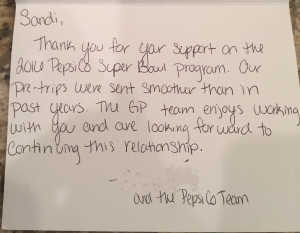 Sandi,
Thank you for your support on the
2016 PepsiCo Super Bowl program. Our
pre-trips were sent smoother than in
past years. The GP team enjoys working
with you and are looking forward to
continuing this relationship.
and the PepsiCo Team